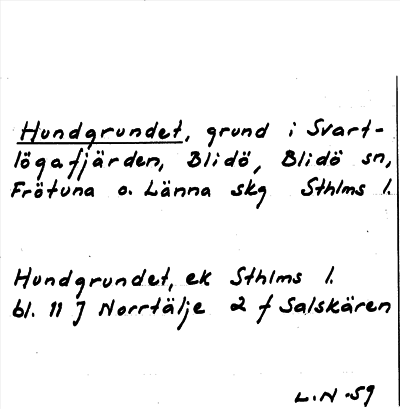 Hundgrundet, grund i Svart-
lögafjärden, Blidö, Blidö sn,
Frötuna o. Länna skg Sthlms l.
Hundgrundet, ek Sthlms l.
bl. 11 J Norrtälje 2 f Salskären
L.N -59